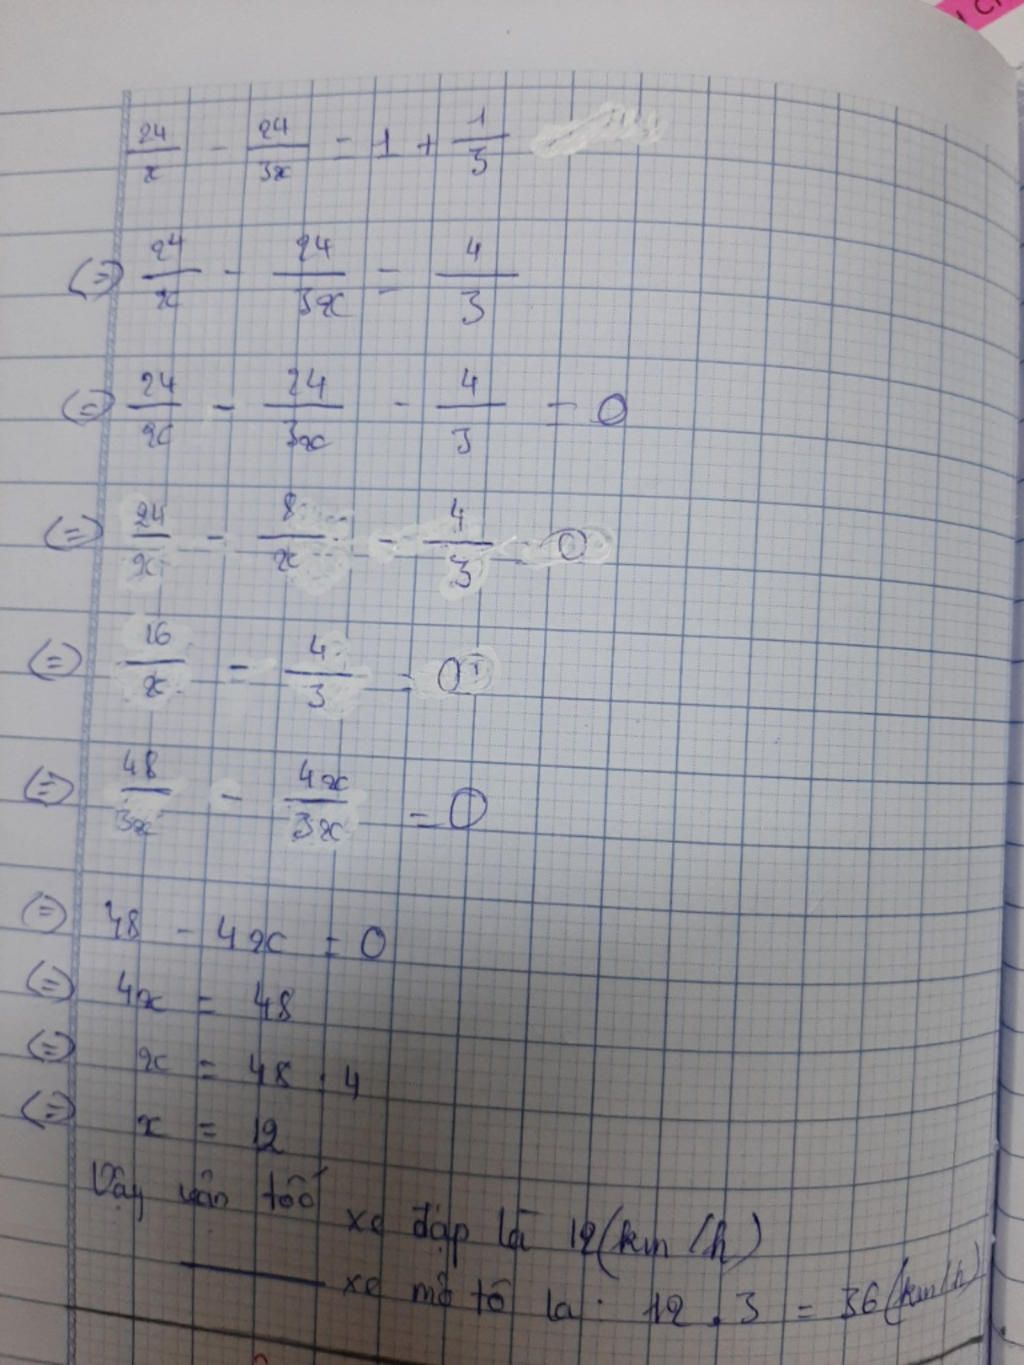 24/x - 24/3x = 1 + 1/3
(=) 24/x - 24/3x = 4/3
(=) 24/x - 24/3x - 4/3 = 0
(=) 24/x - 8/x - 4/3 = 0
(=) 16/x - 4/3 = 0
(=) 48/3x - 4x/3x = 0
(=) 48 - 4x = 0
(=) 4x = 48
(=) x = 48 : 4
(=) x = 12
Vậy vận tốc xe đạp là 12 (km/h)
xe mô tô là: 12 . 3 = 36 (km/h)